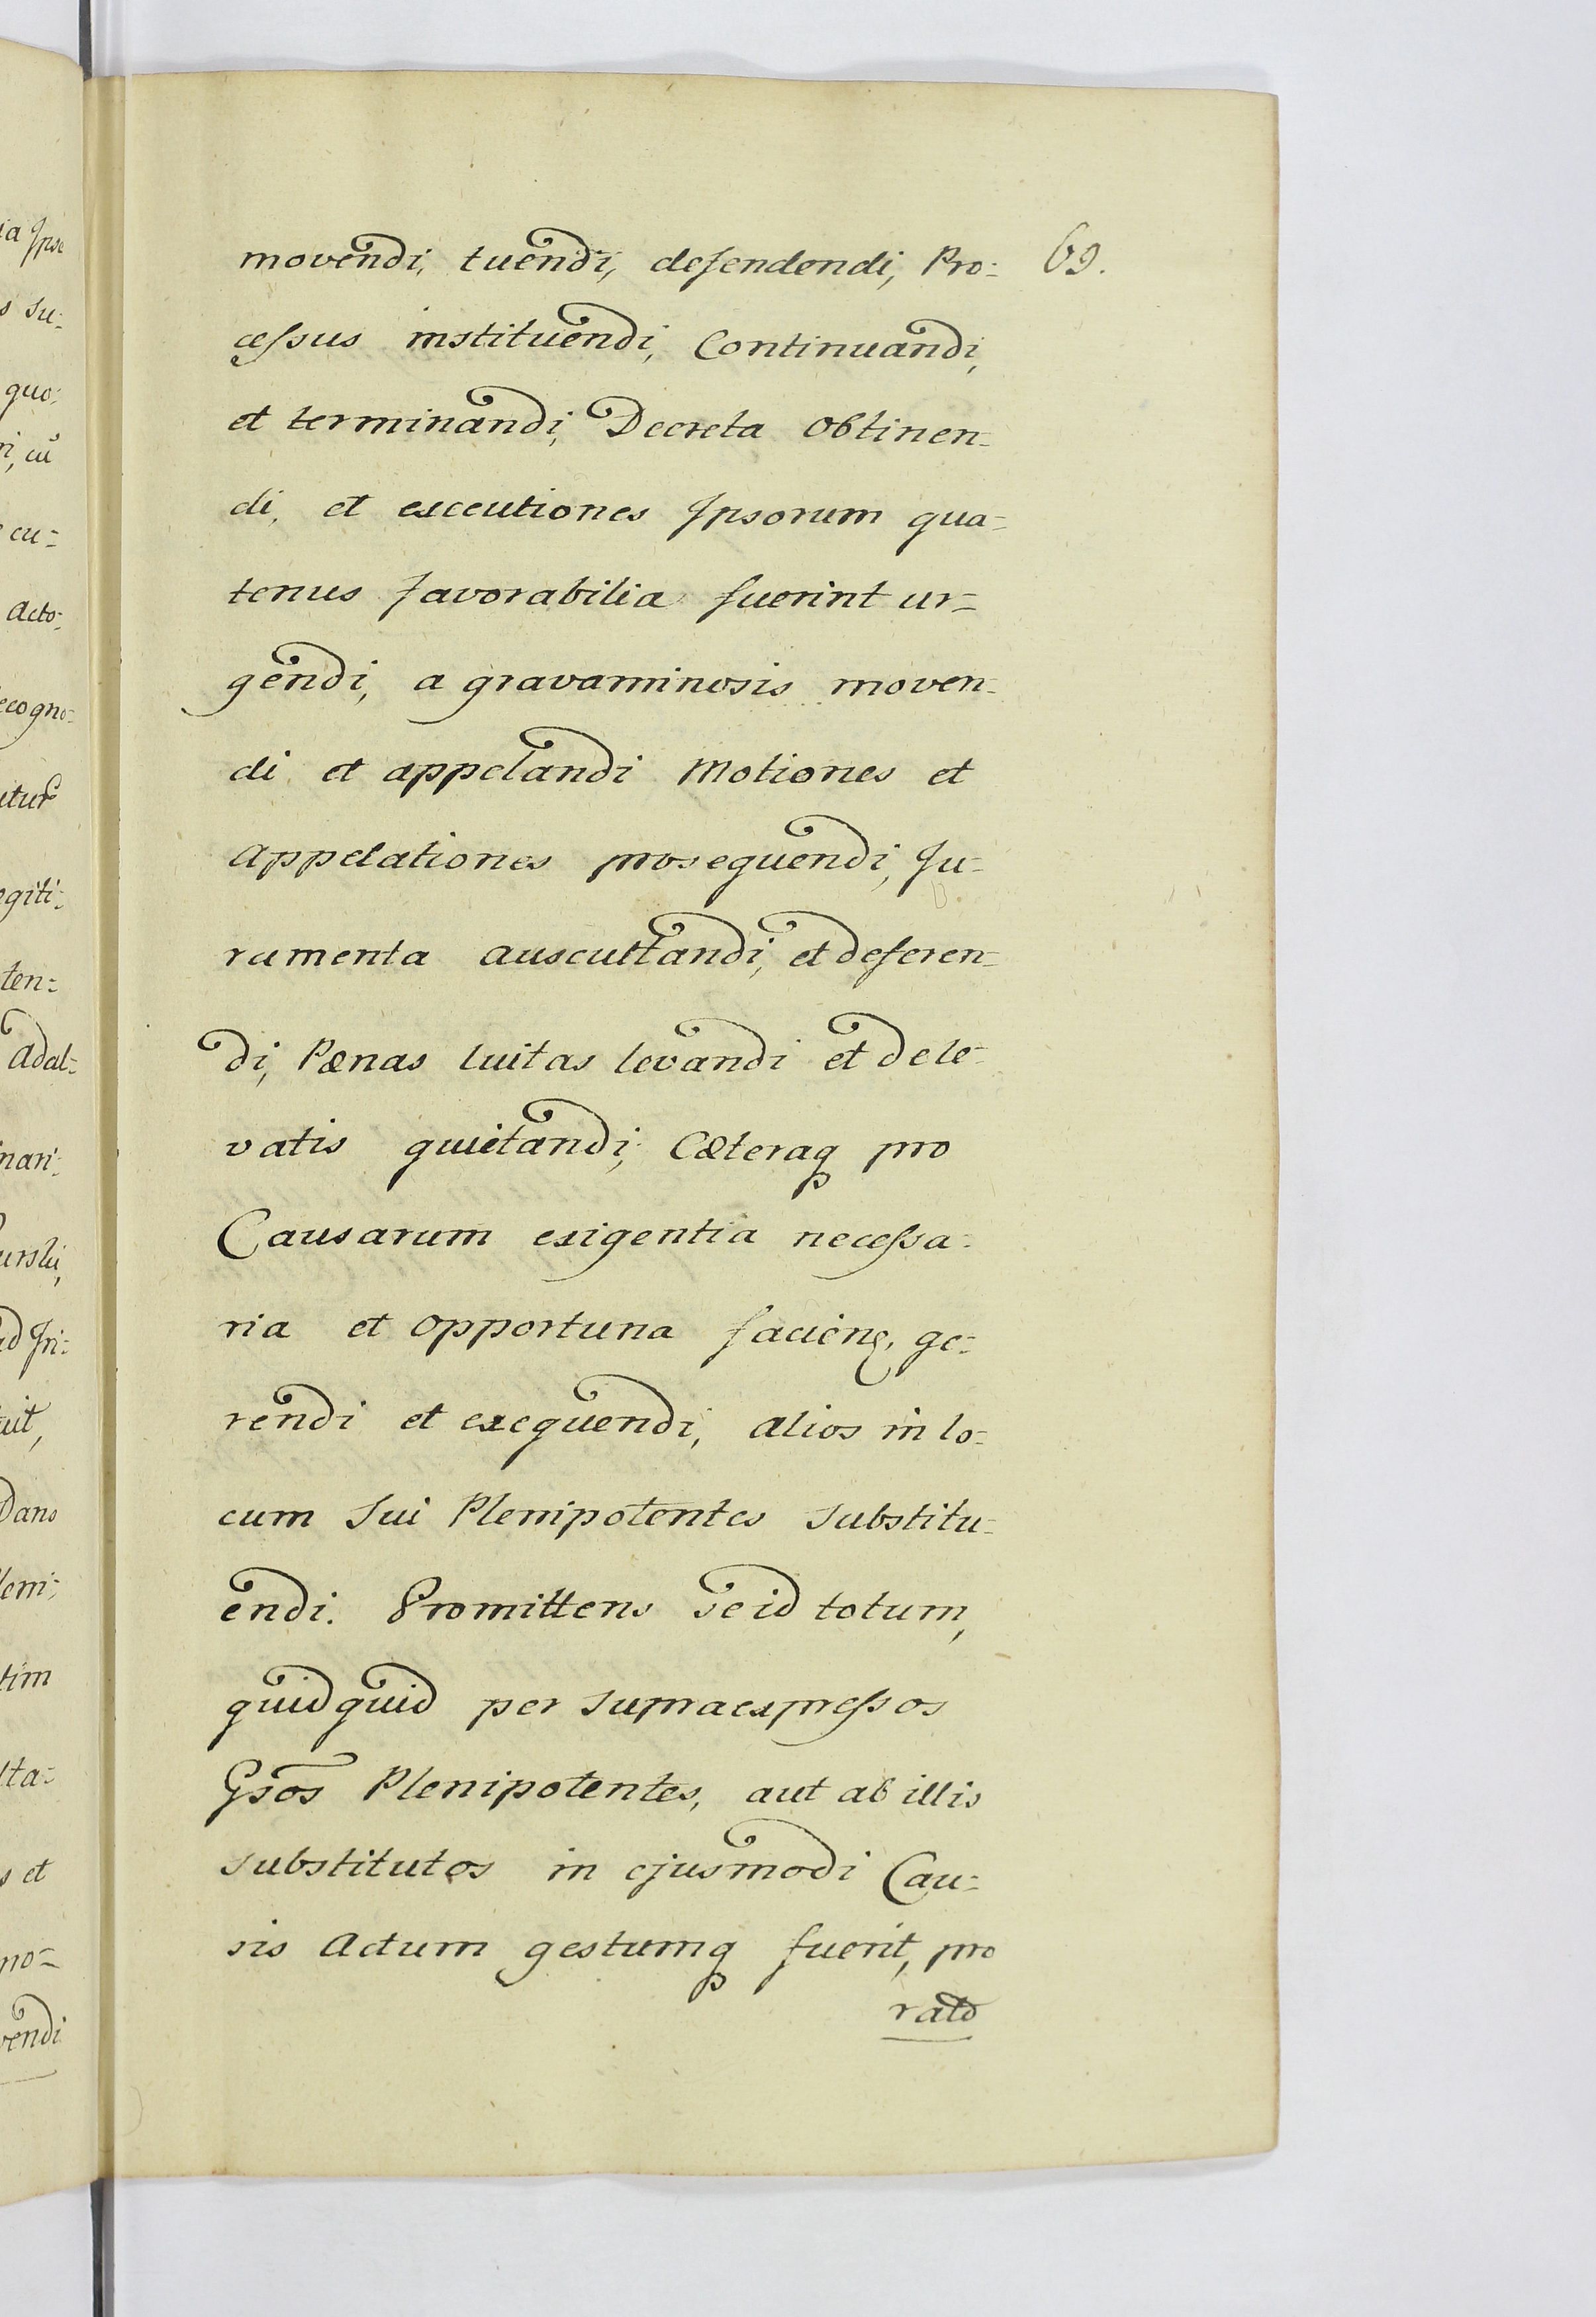 movendi, tuendi, defendendi, Pro= 69.
cessus instituendi, Continuandi,
et terminandi, Decreta obtinen=
di, et executiones Ipsorum qua=
tenus favorabilia fuerint ur=
gendi, a gravaminosis moven=
di et appelandi Motiones et
Appelationes prosequendi, Ju=
ramenta auscultandi, et deferen=
di, Pænas luitas levandi et de le=
vatis quietandi, Cæteraq pro
Causarum exigentia necessa=
ria et opportuna ge=
rendi et exequendi, alios in lo=
cum Sui Plenipotentes Substitu=
endi. Promittens Se id totum,
quidquid per Supraexpressos
Gsos Plenipotentes, aut ab illis
substitutos in ejusmodi Cau=
sis Actum gestumq fuerit, pro
rato
ia Ipse
s Su=
quo=
i, cũ
cu=
Acto=
ecogno=
itur
egiti=
ten=
Adal=
nari=
urslii,
ad Jri=
uit,
Dano
leni=
tim
lta=
s et
mo=
vendi